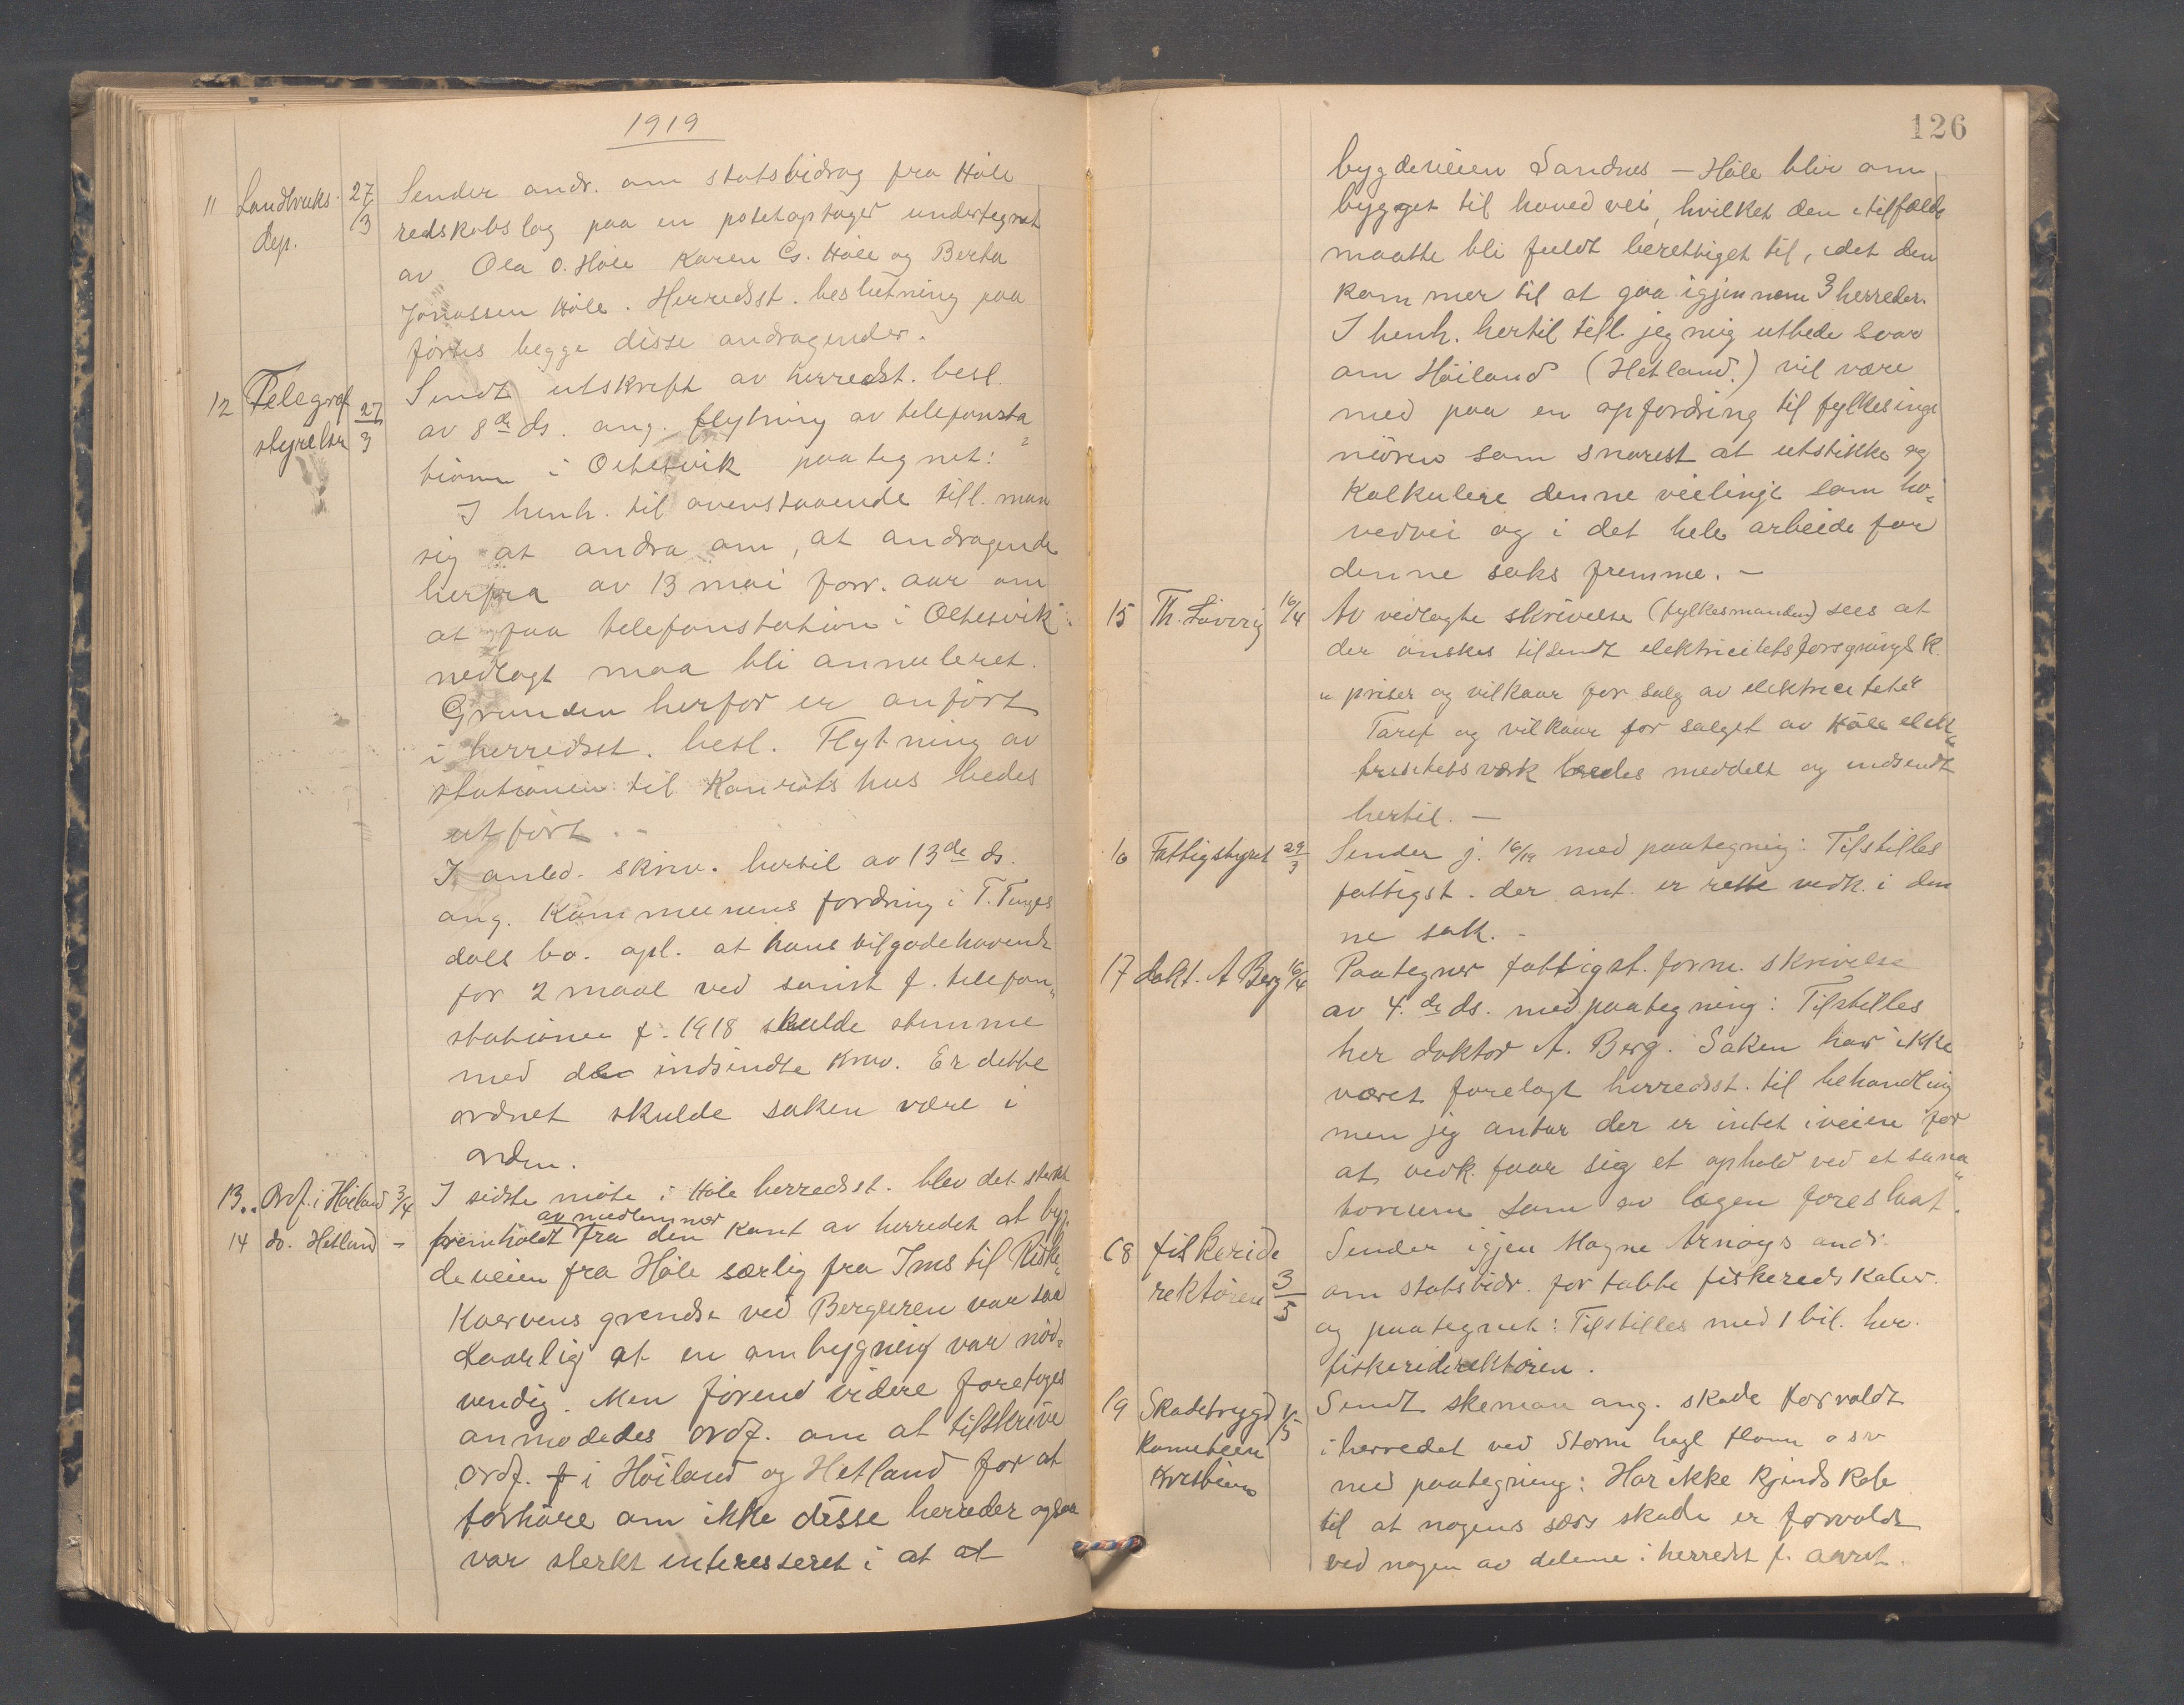 1919
11 Landbruks- dep. 27/3 Sender andr. om statsbidrag fra Høle
redskabslag paa en potetoptager undertegnet
av Ola O. Høle Karen G. Høle og Berta
Jonassen Høle. Herredsst. beslutning paa
førtes begge disse andragender.
12 Telegraf styrelsen 27/3 Sendt utskrift av herredst. besl.
av 8de ds. ang. flytning av telefonsta-
tionen i Oltesvik paategnet:
I henh. til ovenstaaende till. man
sig at andra om, at andragende
herfra av 13 mai forr. aar om
at faa telefonstation i Oltesvik
nedlagt maa bli annuleret.
Grunden herfor er anført
i herredsst. besl. Flytning av
stationen til Konrøts hus bedes
utført. -
I anled. skriv. hertil av 13de ds.
ang. Kommunens fordring i T. Tunges
dals bo. opl. at hans tilgodehavende
for 2 maal ved f. telefon-
stationen f. 1918 skulde stemme
med den indsendte krav. Er dette
ordnet skulde saken være i
orden.
13.. Ordf. i Høiland 3/4 I sidste møte i Høle herredsst. blev det sterkt
av medlemmer
14 do. Hetland - fremholdt fra den kant av herredet at byg-
deveien fra Høle særlig fra Ims til Riske-
Kvervens grendse ved Bergeren var saa
daarlig at en ombygning var nød-
vendig. Men førend videre foretoges
anmodedes ordf. om at tilskrive
ordf. f i Høiland og Hetland for at
forhøre om ikke disse herreder ogsaa
var sterkt interesseret i at at
126
bygdeveien Sandnes - Høle blir om
bygget til hovedvei, hvilket den i tilfælde
maatte bli fuldt berettiget til, idet den
kommer til at gaa igjennem 3 herreder.
I henh. hertil till. jeg mig utbede svar
om Høiland (Hetland.) vil være
med paa en opfordring til fylkesinge
niøren som snarest at utstikke og
kalkulere denne veilinje som ho-
vedvei og i det hele arbeide for
denne saks fremme. -
15 Th. Løvvig 16/4 Av vedlagte skrivelse (fylkesmanden) sees at
der ønskes tilsendt elektricitetsforsyningsk.
" priser og vilkaar for salg av elektricitete"
Tarif og vilkaar for salget av Høle elek-
tricitetsværk bedes meddelt og indsendt
hertil. -
16 Fattigstyret 29/3 Sender j. 16/19 med paategning: Tilstilles
fattigst. der ant. er rette vedk. i den
ne sak. -
17 Dokt. A Berg 16/4 Paategner fattigst. form. skrivelse
av 4.de ds. med paategning: Tilstilles
her doktor A. Berg. Saken har ikke
været forelagt herredsst. til behandling
men jeg antar der er intet iveien for
at vedk. faar sig et ophold ved et sana-
torium som av lægen foreslaat.
18 fiskeride rektøren 3/5 Sender igjen Magne Arnøys andr.
om statsbidr. for tabte fiskeredskaber.
og paategnet: Tilstilles med 1 bil. her.
fiskeridirektøren.
19 Skadetrygd Kometeen Kristiania 1/5 Sendt skeman ang. skade forvoldt
i herredet ved Storm hagl flom osv
med paategning: Har ikke kjendskab
til at nogens særs skade er forvoldt
ved nogen av delene i herredet f. aaret.